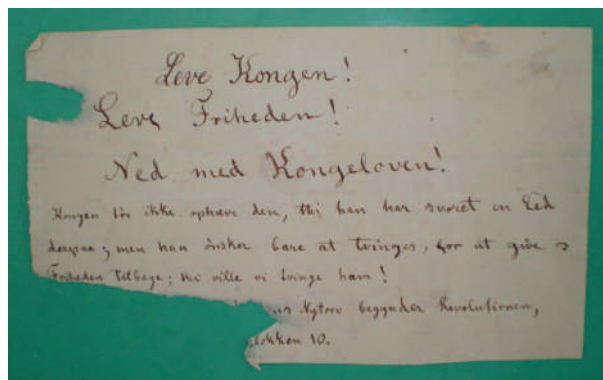 Leve Kongen!
Leve Friheden!
Ned med Kongeloven!
Kongen tör ikke ophæve den, thi han har svoret en Eed
derpaa; men han önsker bare at tvinges, for at give os
Friheden tilbage; thi ville vi tvinge ham!
Nytorv begynder Revolutionen,
Klokken 10.